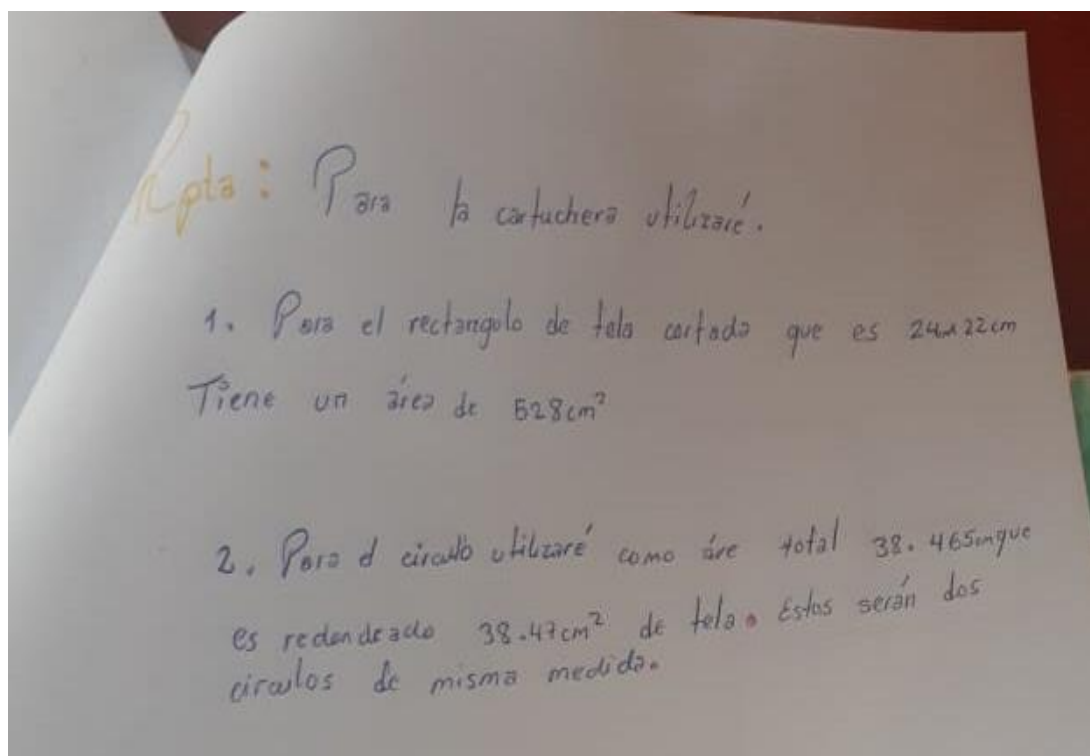 Rpta: Para la cartuchera utilizaré.
1. Para el rectangulo de tela cortada que es 24x22cm
Tiene un área de 528cm²
2. Para el circulo utilizaré como áre total 38.465cm que
es redondeado 38.47cm² de tela. Estos serán dos
circulos de misma medida.